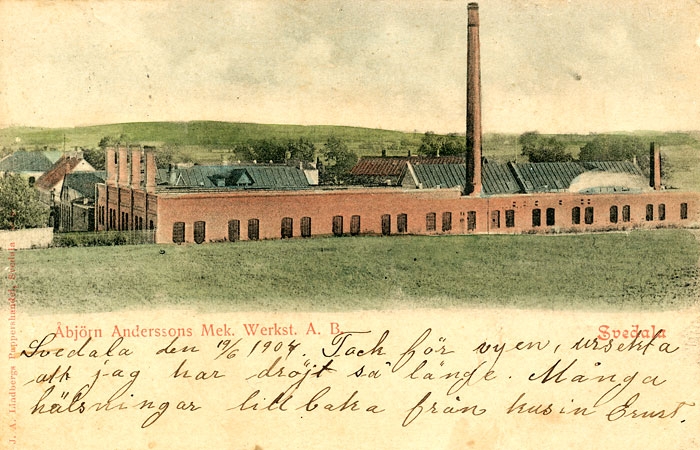 Åbjörn Anderssons Mek. Werkst. A. B. Svedala
Svedala den 19/6 1904. Tack för vyen, ursekta
att jag har dröjt så länge. Många
hälsningar tillbaka från kusin Ernst.
J. A. Lindbergs Pappershandel, Svedala